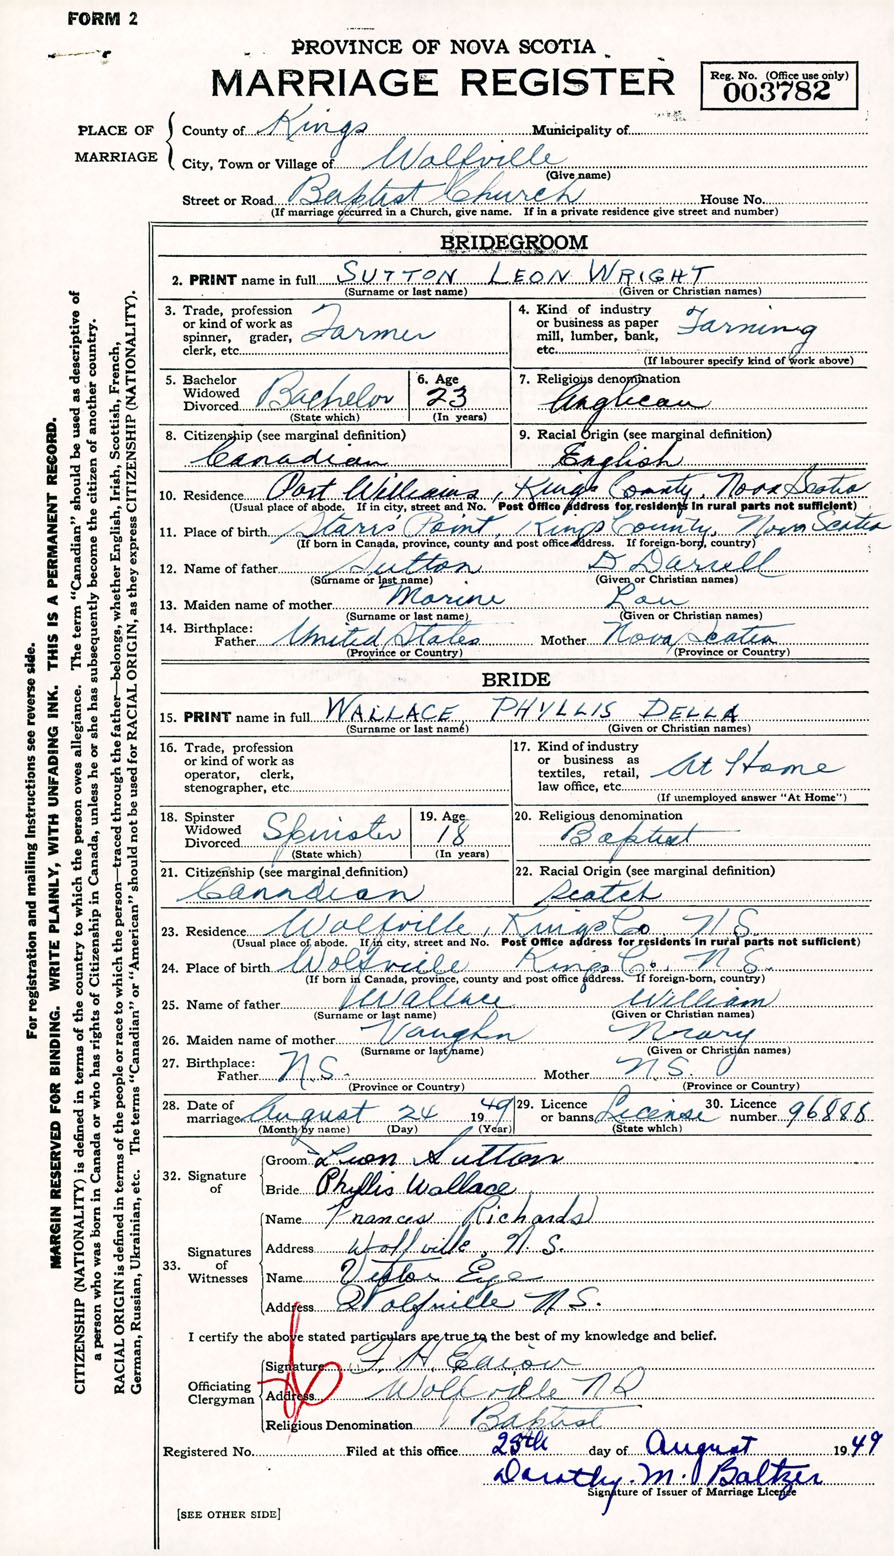 FORM 2
PROVINCE OF NOVA SCOTIA
MARRIAGE REGISTER
Reg. No. (Office use only)
003782
PLACE OF MARRIAGE
County of Kings Municipality of
City, Town or Village of Wolfville
(Give name)
Street or Road Baptist Church House No.
(If marriage occurred in a Church, give name. If in a private residence give street and number)
BRIDEGROOM
2. PRINT name in full SUTTON LEON WRIGHT
(Surname or last name) (Given or Christian names)
3. Trade, profession or kind of work as spinner, grader, clerk, etc. Farmer
4. Kind of industry or business as paper mill, lumber, bank, etc. Farming
(If labourer specify kind of work above)
5. Bachelor Widowed Divorced Bachelor
(State which)
6. Age 23
(In years)
7. Religious denomination
Anglican
8. Citizenship (see marginal definition)
Canadian
9. Racial Origin (see marginal definition)
English
10. Residence Port Williams, Kings County, Nova Scotia
(Usual place of abode. If in city, street and No. Post Office address for residents in rural parts not sufficient)
11. Place of birth Starrs Point, Kings County, Nova Scotia
(If born in Canada, province, county and post office address. If foreign-born, country)
12. Name of father Sutton D Darrell
(Surname or last name) (Given or Christian names)
13. Maiden name of mother Lou
(Surname or last name) (Given or Christian names)
14. Birthplace: Father United States Mother Nova Scotia
(Province or Country) (Province or Country)
BRIDE
15. PRINT name in full WALLACE PHYLLIS DELLA
(Surname or last name) (Given or Christian names)
16. Trade, profession or kind of work as operator, clerk, stenographer, etc.
17. Kind of industry or business as textiles, retail, law office, etc. At Home
(If unemployed answer "At Home")
18. Spinster Widowed Divorced Spinster
(State which)
19. Age 18
(In years)
20. Religious denomination
Baptist
21. Citizenship (see marginal definition)
Canadian
22. Racial Origin (see marginal definition)
Scotch
23. Residence Wolfville, Kings Co, N.S.
(Usual place of abode. If in city, street and No. Post Office address for residents in rural parts not sufficient)
24. Place of birth Wolfville Kings Co. N.S.
(If born in Canada, province, county and post office address. If foreign-born, country)
25. Name of father Wallace William
(Surname or last name) (Given or Christian names)
26. Maiden name of mother Vaughn
(Surname or last name) (Given or Christian names)
27. Birthplace: Father N.S. Mother N.S.
(Province or Country) (Province or Country)
28. Date of marriage August 24 1949
(Month by name) (Day) (Year)
29. Licence or banns License
(State which)
30. Licence number 96888
32. Signature of
Groom Leon Sutton
Bride Phyllis Wallace
33. Signatures of Witnesses
Name Frances Richards
Address Wolfville, N.S.
Name Victor Eye
Address Wolfville N.S.
I certify the above stated particulars are true to the best of my knowledge and belief.
Officiating Clergyman
Signature F. H.
Address Wolfville
Religious Denomination Baptist
Registered No. Filed at this office 25th day of August 1949
Dorothy M. Baltzer
Signature of Issuer of Marriage Licence
[SEE OTHER SIDE]
For registration and mailing instructions see reverse side.
MARGIN RESERVED FOR BINDING. WRITE PLAINLY, WITH UNFADING INK. THIS IS A PERMANENT RECORD.
CITIZENSHIP (NATIONALITY) is defined in terms of the country to which the person owes allegiance. The term "Canadian" should be used as descriptive of
a person who was born in Canada or who has rights of Citizenship in Canada, unless he or she has subsequently become the citizen of another country.
RACIAL ORIGIN is defined in terms of the people or race to which the person—traced through the father—belongs, whether English, Irish, Scottish, French,
German, Russian, Ukrainian, etc. The terms "Canadian" or "American" should not be used for RACIAL ORIGIN, as they express CITIZENSHIP (NATIONALITY).